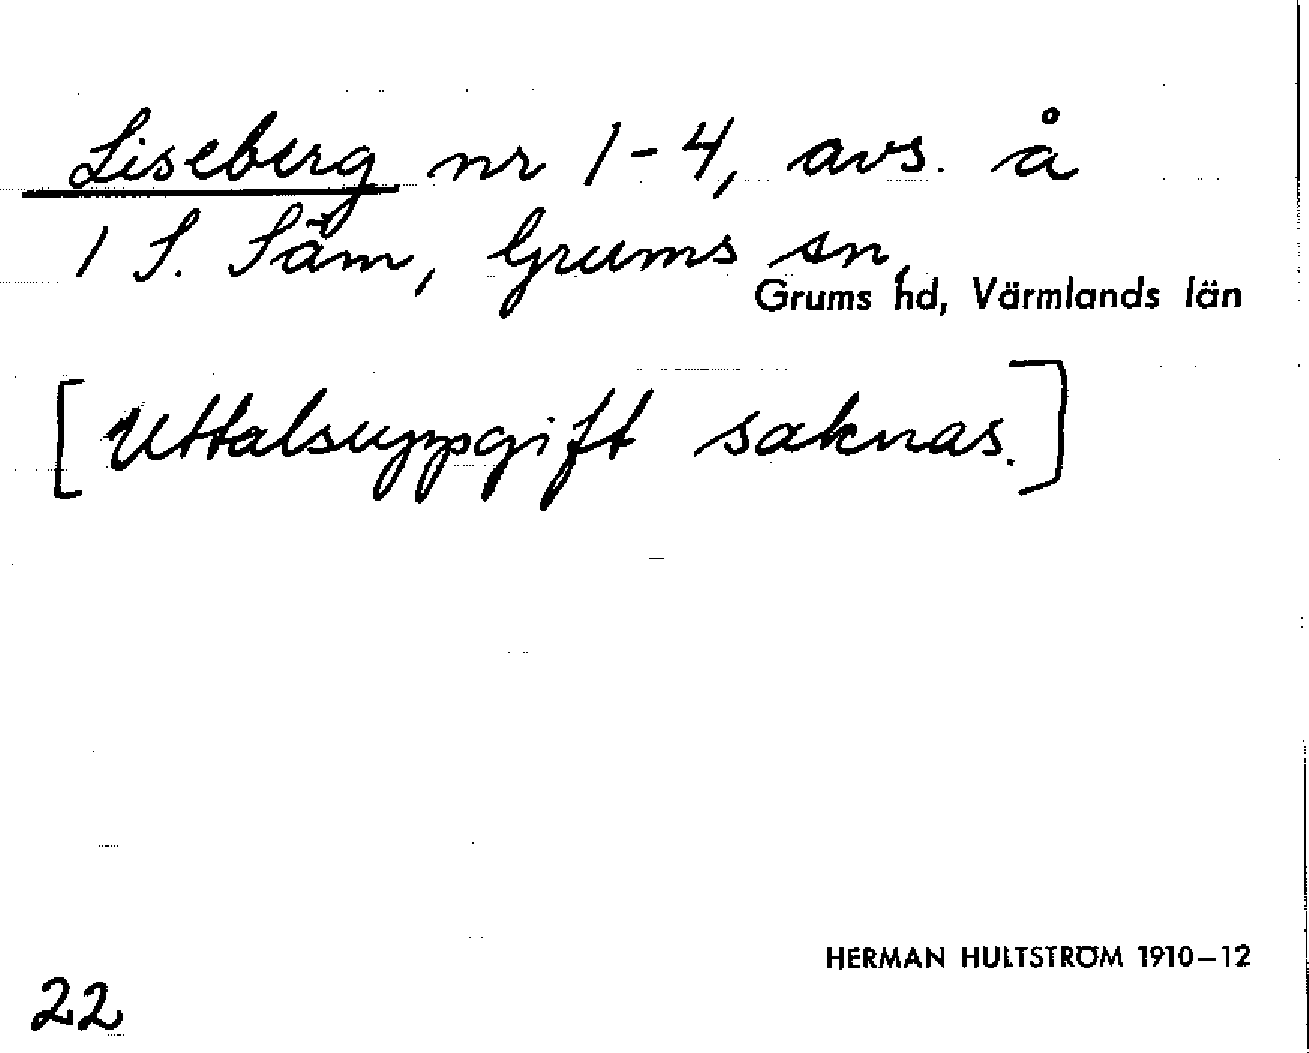 Liseberg nr 1-4, avs. å
1 S. Säm, Grums sn,
Grums hd, Värmlands län
[Uttalsuppgift saknas.]
HERMAN HULTSTRÖM 1910–12
22